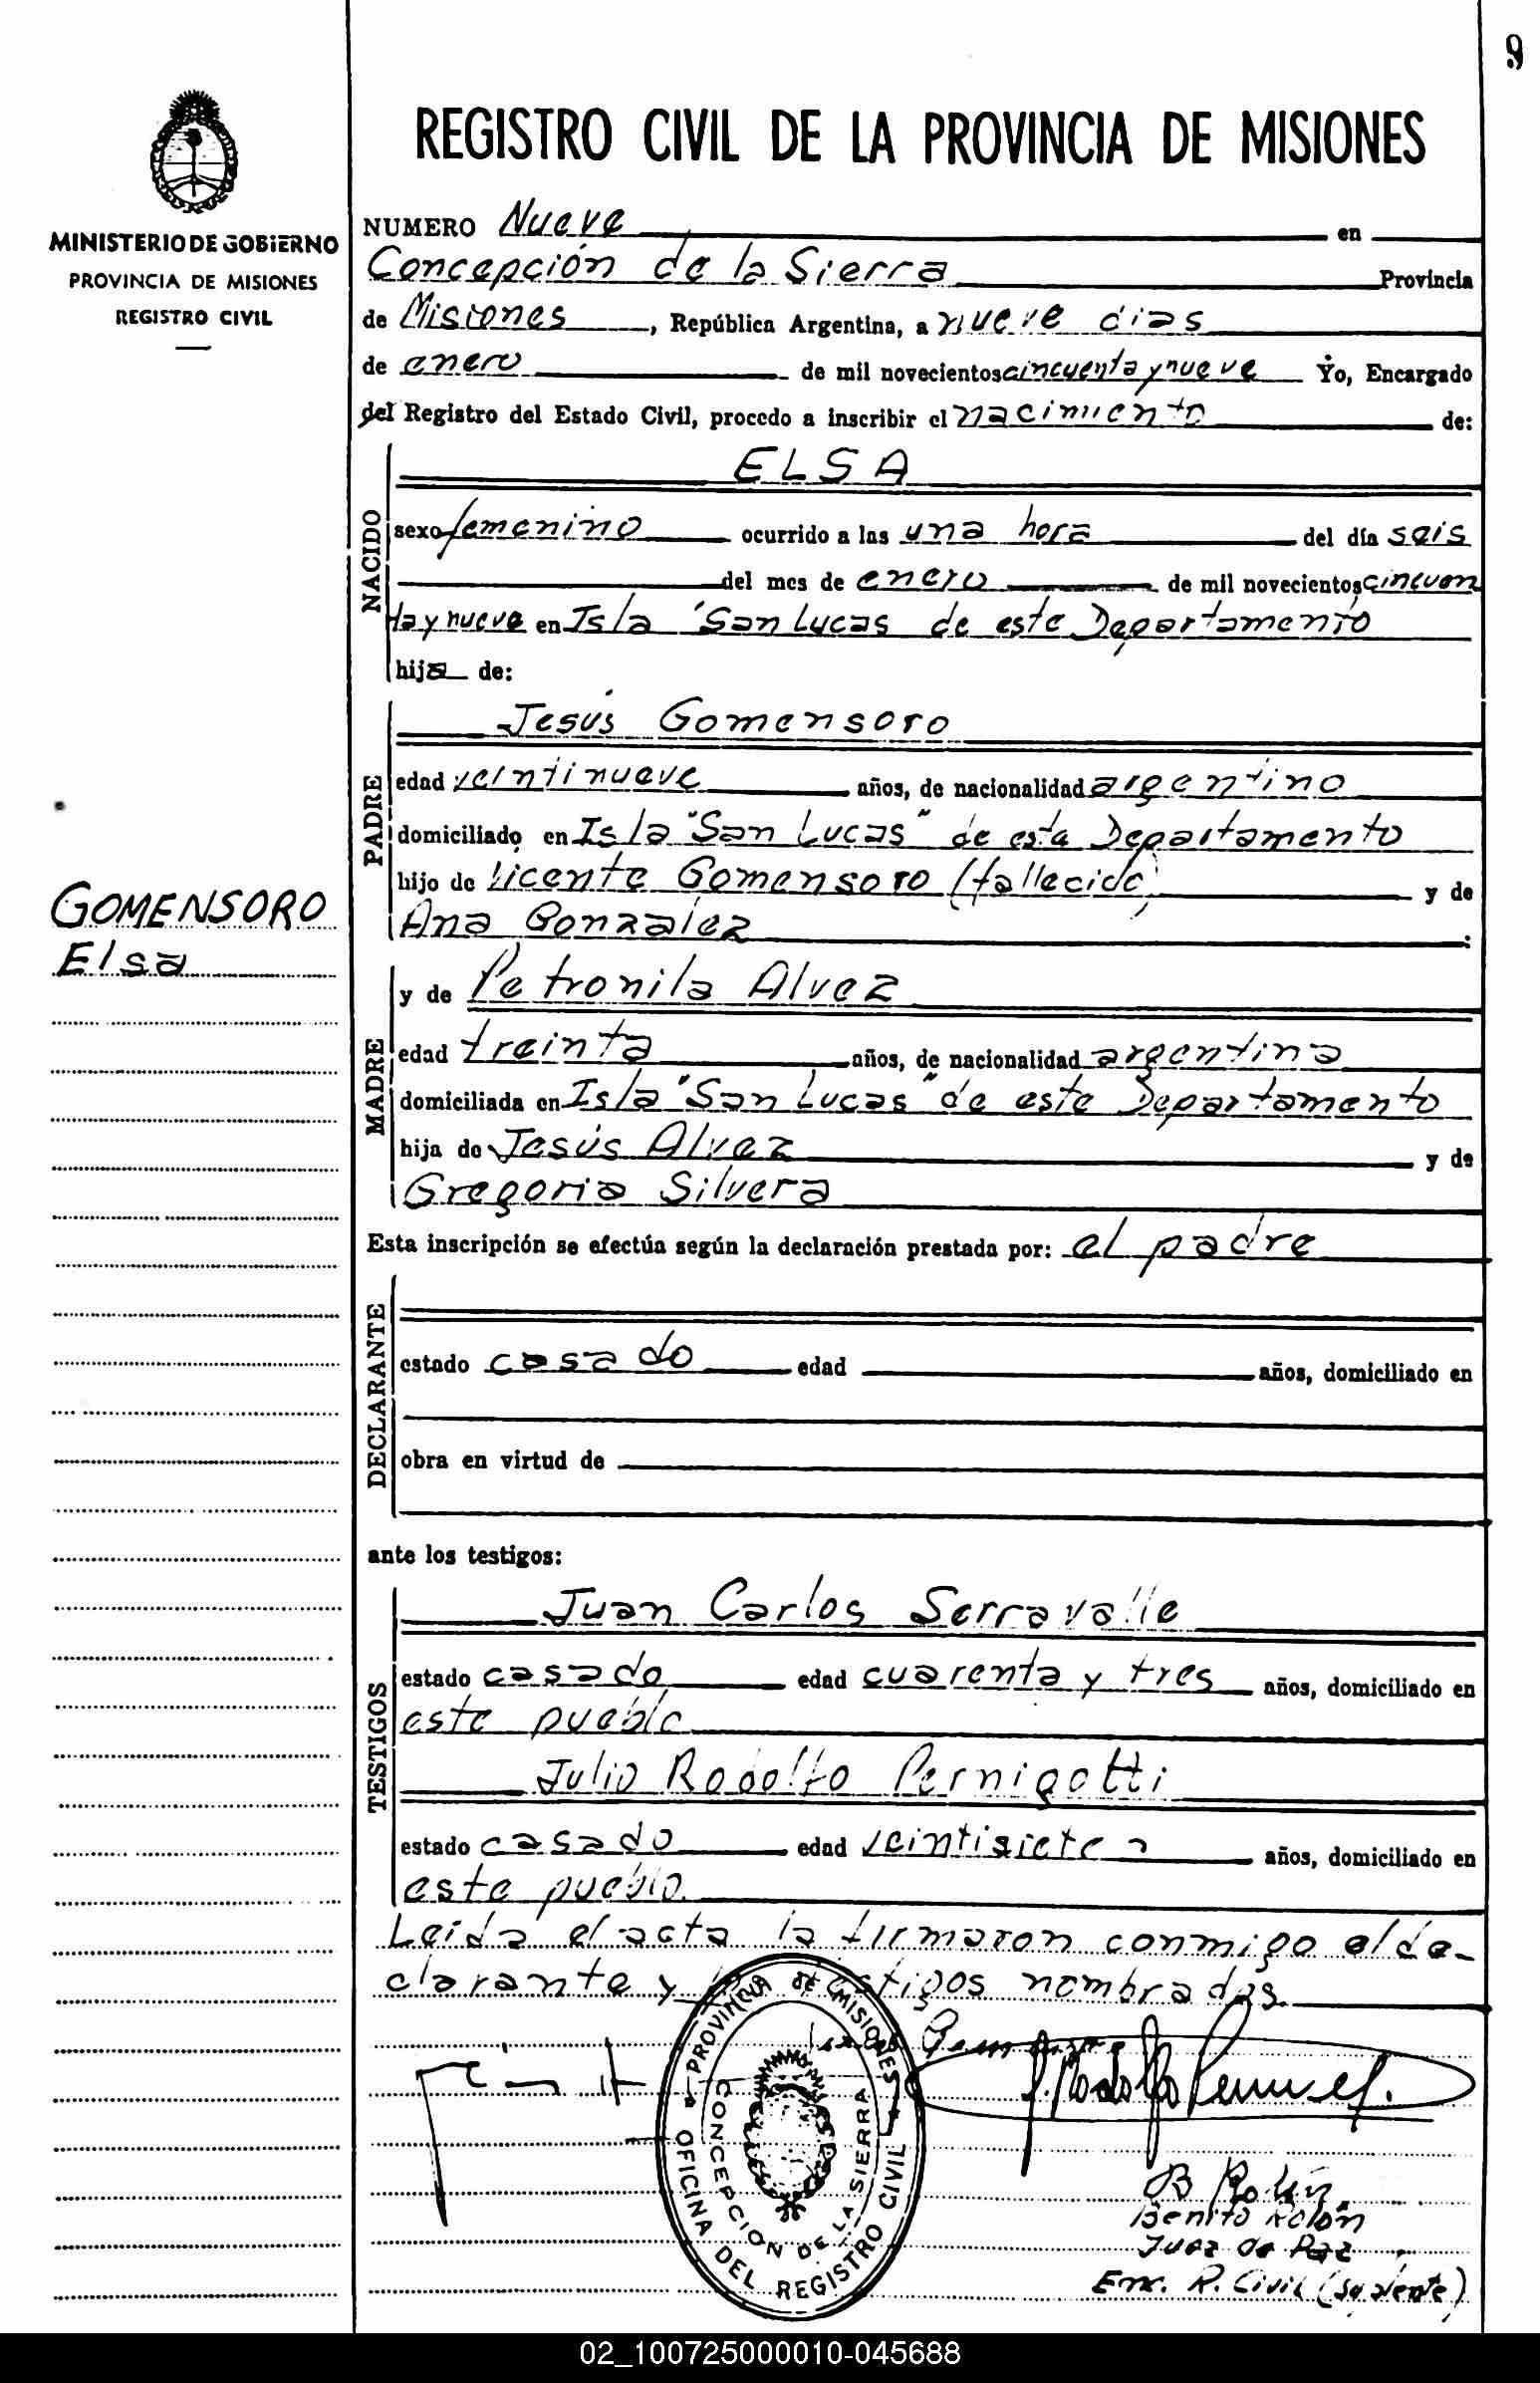 9
REGISTRO CIVIL DE LA PROVINCIA DE MISIONES
MINISTERIO DE GOBIERNO
PROVINCIA DE MISIONES
REGISTRO CIVIL
NUMERO Nueve en
Concepción de la Sierra Provincia
de Misiones, República Argentina, a nueve dias
de enero de mil novecientos cincuenta y nueve Yo, Encargado
del Registro del Estado Civil, procedo a inscribir el nacimiento de:
NACIDO
ELSA
sexo femenino ocurrido a las una hora del día seis
del mes de enero de mil novecientos cincuen
ta y nueve en Isla "San Lucas de este Departamento
hija de:
PADRE
Jesús Gomensoro
edad veintinueve años, de nacionalidad argentino
domiciliado en Isla "San Lucas" de este Departamento
hijo de Vicente Gomensoro (fallecido) y de
Ana Gonzalez:
GOMENSORO
Elsa
MADRE
y de Petronila Alvez
edad treinta años, de nacionalidad argentina
domiciliada en Isla "San Lucas" de este Departamento
hija de Jesús Alvez y de
Gregoria Silvera
Esta inscripción se efectúa según la declaración prestada por: el padre
DECLARANTE
estado casado edad años, domiciliado en
obra en virtud de
ante los testigos:
TESTIGOS
Juan Carlos Serravalle
estado casado edad cuarenta y tres años, domiciliado en
este pueblo
Julio Rodolfo Pernigotti
estado casado edad veintisiete años, domiciliado en
este pueblo.
Leída el acta la firmaron conmigo el de-
clarante y testigos nombrados.
PROVINCIA DE MISIONES
OFICINA DEL REGISTRO CIVIL
CONCEPCION DE LA SIERRA
B Rolón
Benito Rolón
Juez de Paz
Enc. R. Civil
02_100725000010-045688